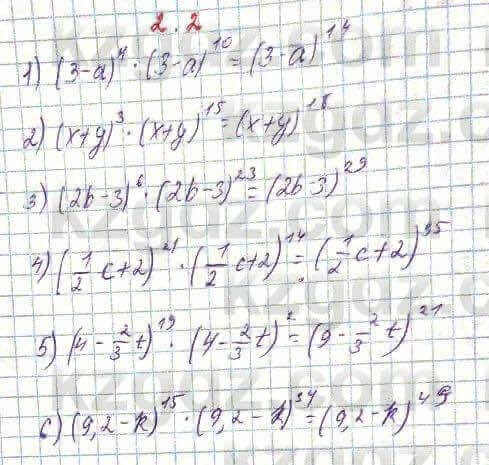 2.2
1) (3-a)^4 · (3-a)^10 = (3-a)^14
2) (x+y)^3 · (x+y)^15 = (x+y)^18
3) (2b-3)^6 · (2b-3)^23 = (2b 3)^29
4) (1/2 c+2)^21 · (1/2 c+2)^14 = (1/2 c+2)^35
5) (4-2/3 t)^19 · (4-2/3 t)^2 = (9-2/3 t)^21
6) (9,2-k)^15 · (9,2-k)^34 = (9,2-k)^49